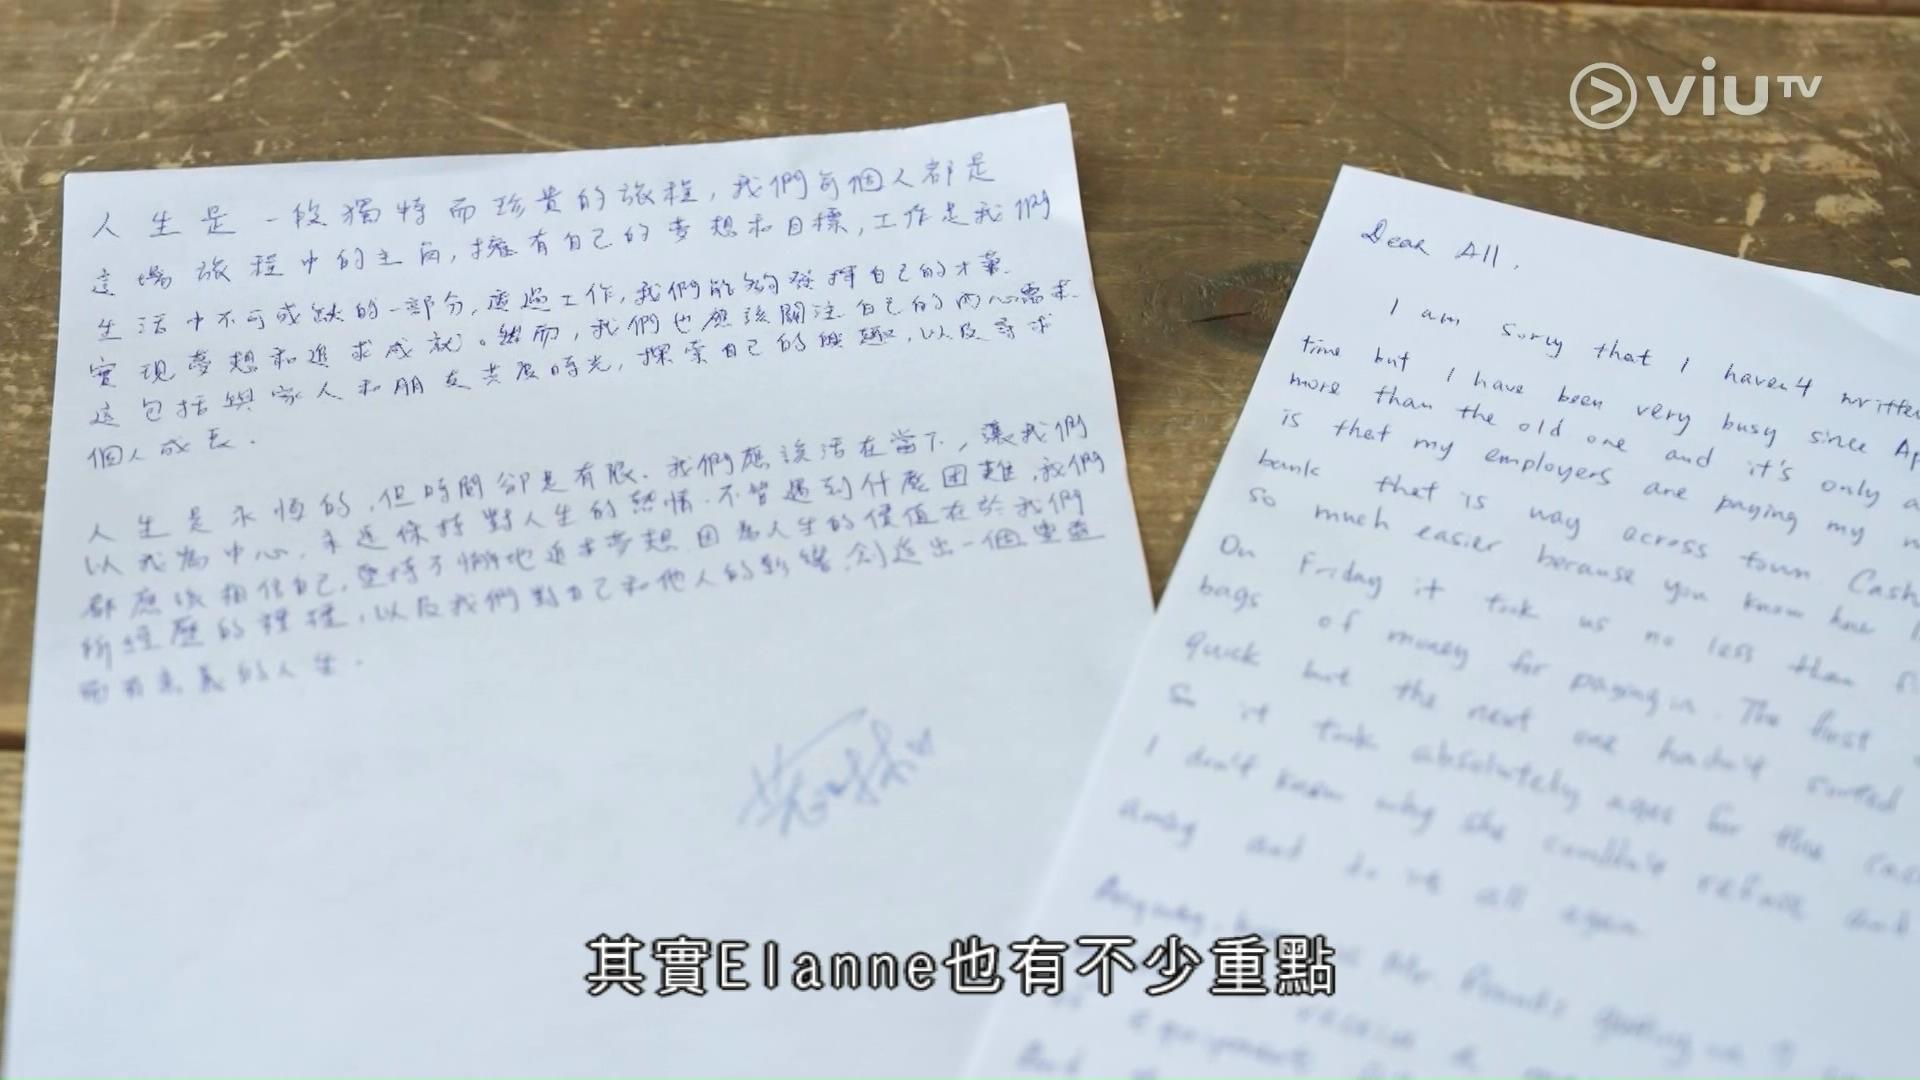 viuTV
人生是一段獨特而珍貴的旅程，我們每個人都是
這場旅程中的主角，擁有自己的夢想和目標，工作是我們
生活中不可或缺的一部分，透過工作，我們能夠發揮自己的才華.
實現夢想和追求成就。然而，我們也應該關注自己的內心需求.
這包括與家人和朋友共度時光，探索自己的興趣，以及尋求
個人成長.
人生是永恆的，但時間卻是有限. 我們應該活在當下，讓我們
以我為中心，永遠保持對人生的熱情. 不管遇到什麼困難，我們
都應該相信自己，堅持不懈地追求夢想. 因為人生的價值在於我們
所經歷的種種，以及我們對自己和他人的影響，創造出一個豐盛
而有意義的人生.
Dear All,
I am sorry that I haven't written
time but I have been very busy since Ap
more than the old one and it's only a
is that my employers are paying my
bank that is way across town. Cash
so much easier because you know how
On Friday it took us no less than
bags of money for paying in. The first
quick but the next one hadn't sorted
So it took absolutely ages for the cas
I don't know why she couldn't refuse and
away and do it all again
其實Elanne也有不少重點